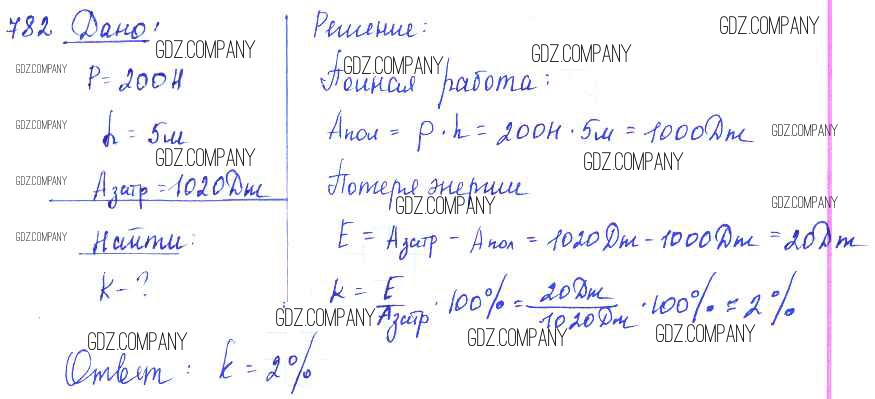 782 Дано:
GDZ.COMPANY
P = 200Н
GDZ.COMPANY
h = 5м
GDZ.COMPANY
GDZ.COMPANY
Aзатр = 1020Дж
GDZ.COMPANY
Найти:
GDZ.COMPANY
k - ?
Решение:
GDZ.COMPANY
GDZ.COMPANY
GDZ.COMPANY
работа:
Aпол = p · h = 200Н · 5м = 1000Дж
GDZ.COMPANY
GDZ.COMPANY
Потеря энергии
GDZ.COMPANY
GDZ.COMPANY
E = Aзатр - Aпол = 1020Дж - 1000Дж = 20Дж
k = E/Aзатр · 100% = 20Дж/1020Дж · 100% = 2%
GDZ.COMPANY
GDZ.COMPANY
GDZ.COMPANY
GDZ.COMPANY
Ответ: k = 2%